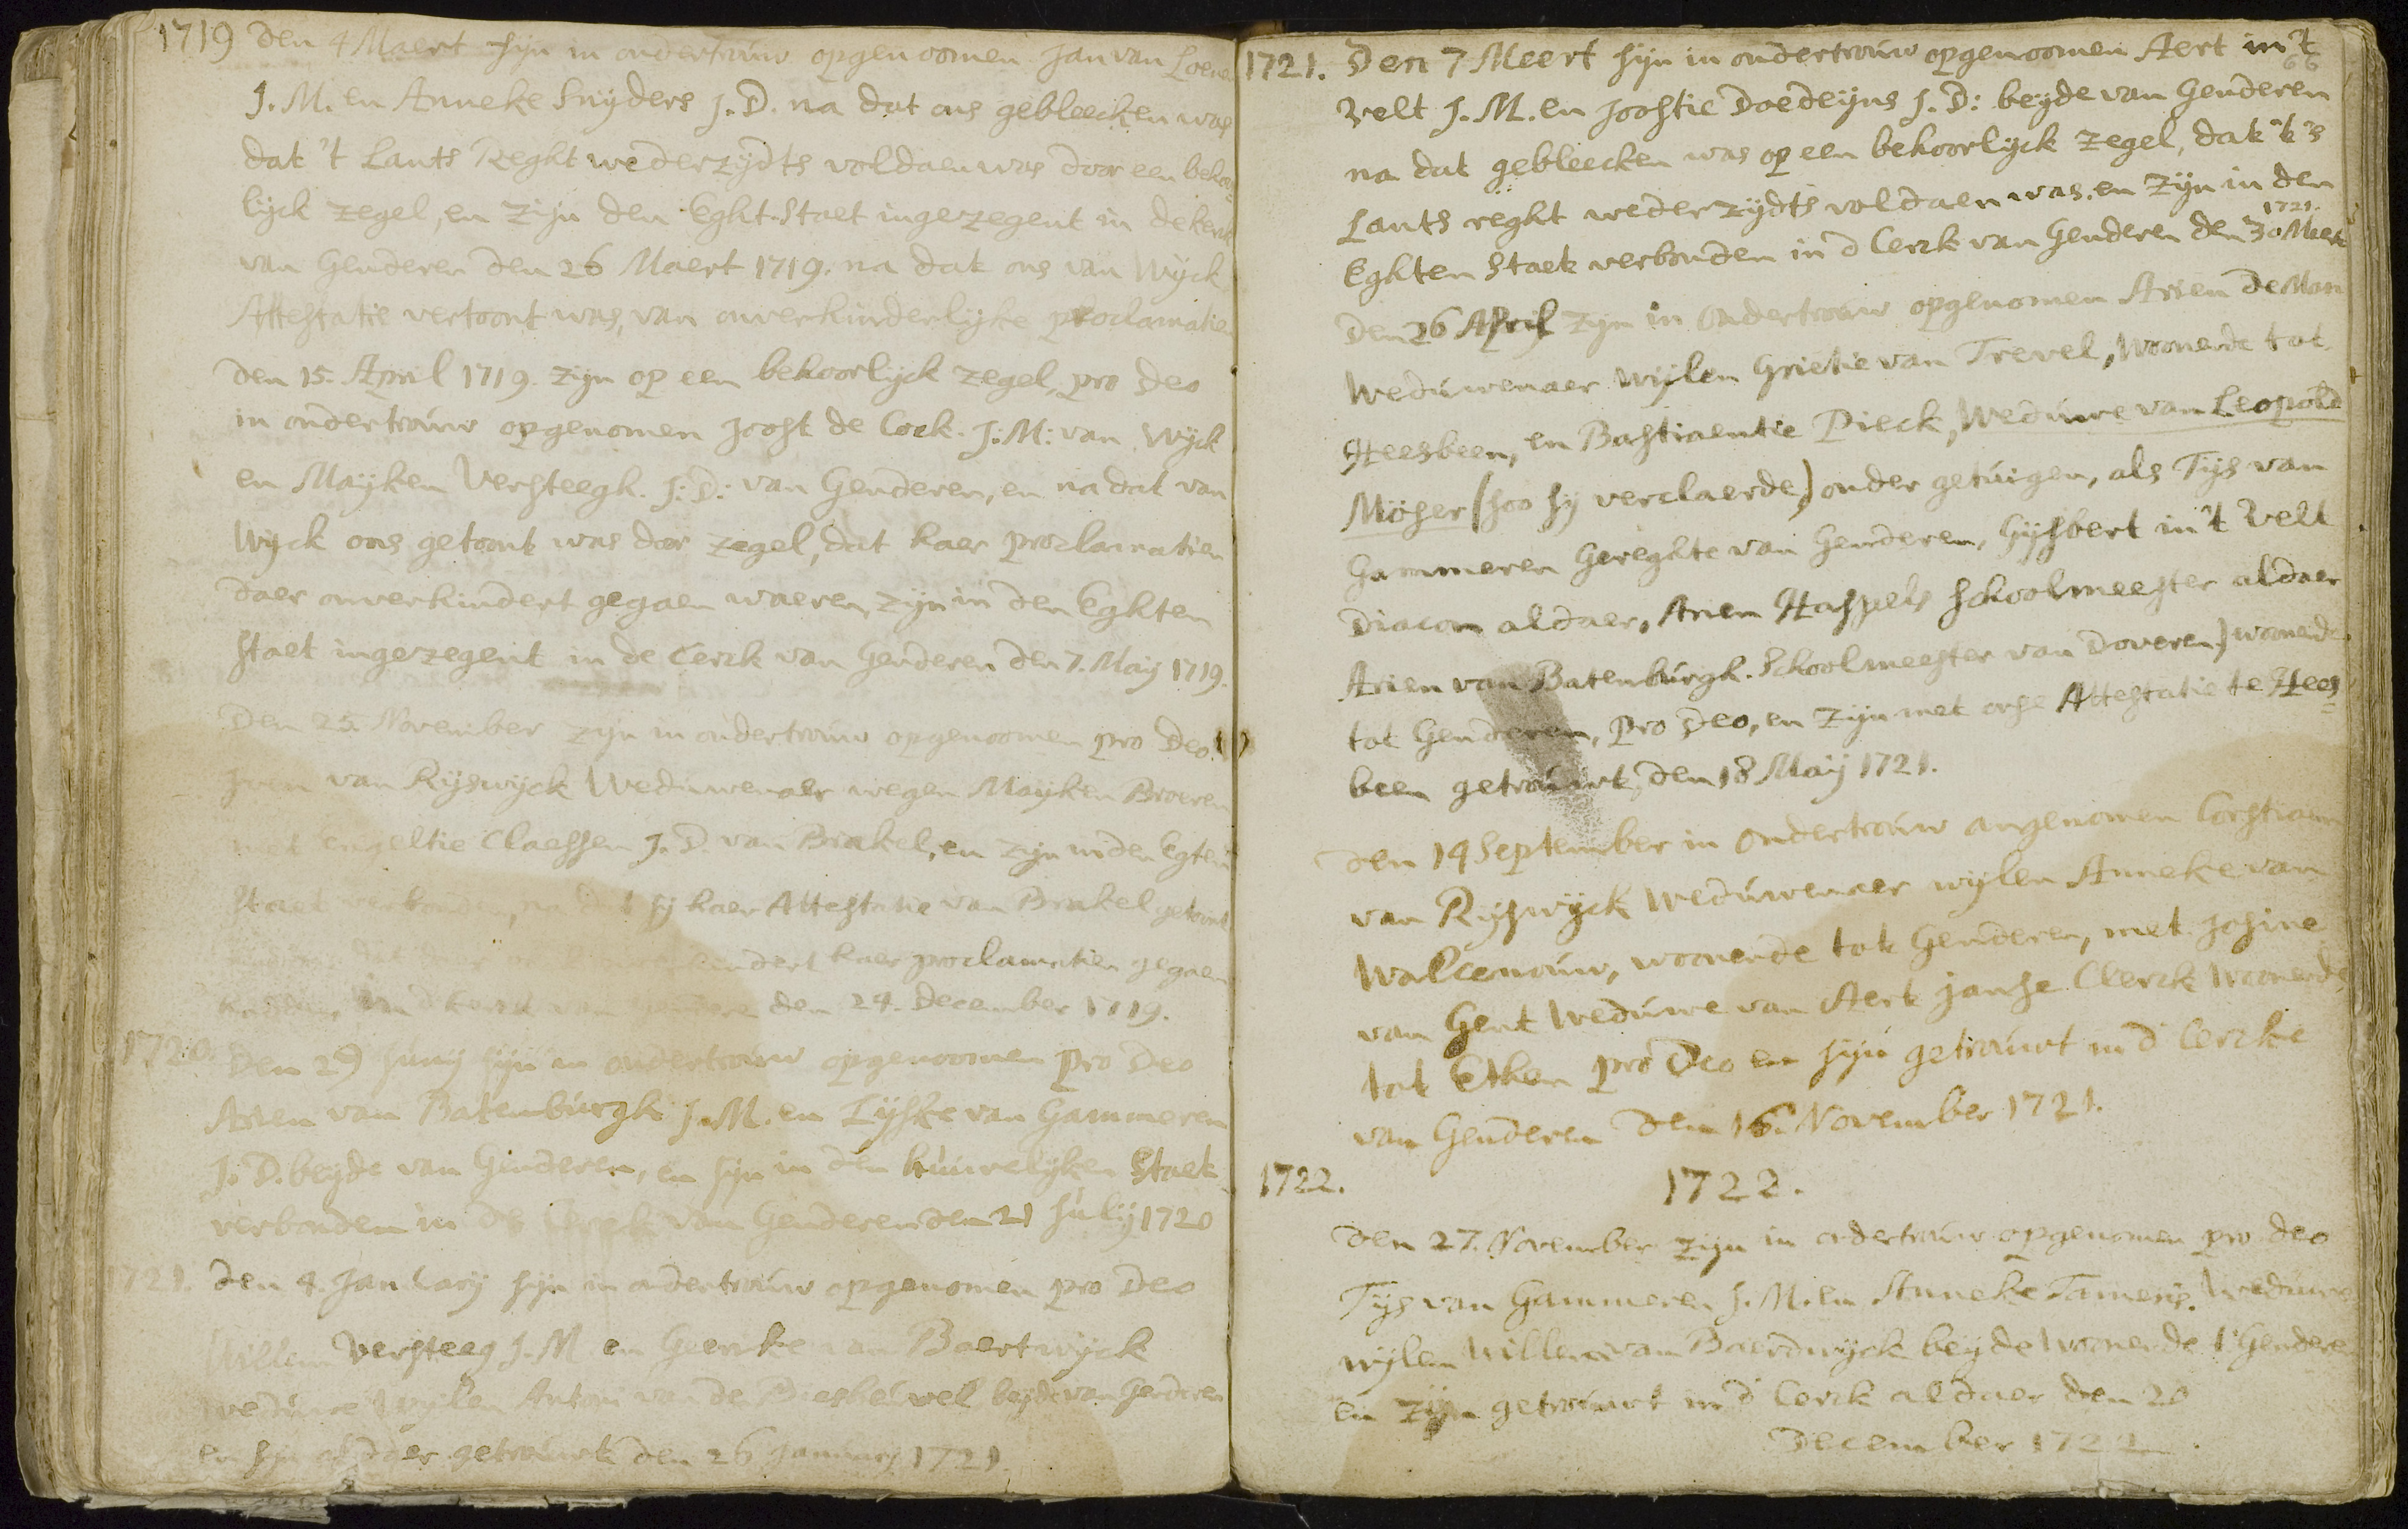 1719 den 4 Maert sijn in ondertrouw opgenoomen Jan van Loene
J. M. en Anneke Snijders J. D. na dat ons gebleecken was
dat 't Lants Reght wederzijdts voldaen was door een behoor=
lijck zegel, en zijn den Eght-Staet ingezegent in de kerck
van Genderen den 26 Maert 1719. na dat ons van Wijck
Attestatie vertoont was, van onverhinderlijke proclamatien
den 15. April 1719. zijn op een behoorlijck zegel, pro deo
in ondertrouw opgenomen Joost de Cock. J: M: van Wijck
en Maijken Versteegh. J: D: van Genderen, en na dat van
Wijck ons getoont was door zegel, dat haer proclamatien
daer onverhindert gegaen waeren, zijn in den Eghten
staet ingezegent in de Cerck van Genderen den 7. Maij 1719.
Den 25. November zijn in ondertrouw opgenoomen pro Deo
van Rijswijck Weduwenaer wegen Maijken Broeren
met engeltie Claessen J. D. van Brakel, en zijn in den Egten
Staet verbonden, na dat sij haer Attestatie van Brakel getoont
haer proclamatien gegaen
hadden, in d kerck van Genderen den 24. December 1719.
1720. Den 29 Junij sijn in ondertrouw opgenoomen pro Deo
Arien van Batenburgh J. M. en Lijske van Gammeren
J. D. beijde van Genderen, en sijn in den huuwelijken Staet
verbonden in de Cerck van Genderen den 21 Julij 1720
1721. den 4. Januarij sijn in ondertrouw opgenomen pro Deo
Willem Versteeg J. M en Geerike van Baertwijck
weduwe wijlen Antoni van de Biesheuvel beijde van Genderen
en sijn aldaer getrouwt den 26 January 1721.
66
1721. Den 7 Meert sijn in ondertrouw opgenoomen Aert in 't
Velt J. M. en Joostie Doedeijns J. D: beijde van Genderen
na dat gebleecken was op een behoorlijck zegel, dat 't 's
Lants reght wederzijdts voldaen was. en zijn in den
1721.
Eghten Staet verbonden in d Cerck van Genderen den 30 Meert
Den 26 April zijn in Ondertrouw opgenomen Arien de Man
Weduwenaer wijlen Grietie van Trevel, woonende tot
Heesbeen, en Bastiaentie Pieck, Weduwe van Leopold
Möser (soo sij verclaerde) onder getuigen, als Tijs van
Gammeren Gereghte van Genderen, Gijsbert in 't Velt
Diacon aldaer, Arien Haspels schoolmeester aldaer
Arien van Batenburgh. Schoolmeester van Doveren) woonende
tot Genderen, pro Deo, en zijn met onse Attestatie te Hees=
been getrouwt, den 18 Maij 1721.
den 14 September in Ondertrouw angenomen Corstiaen
van Rijswijck weduwenaer wijlen Anneke van
Walcenouw, woonende tot Genderen, met Josine
van Gent Weduwe van Aert Janse Clerck woonende
tot Ethen pro Deo en sijn getrouwt in d Cercke
van Genderen den 16. November 1721.
1722. 1722.
den 27. November zijn in ondertrouw opgenomen pro deo
Tijs van Gammeren J. M. en Anneke Tameris. Weduwe
wijlen Willem van Baerdwijck beijde Woonende t' Genderen
en zijn getrouwt in d' Cerck aldaer den 20
December 1722.